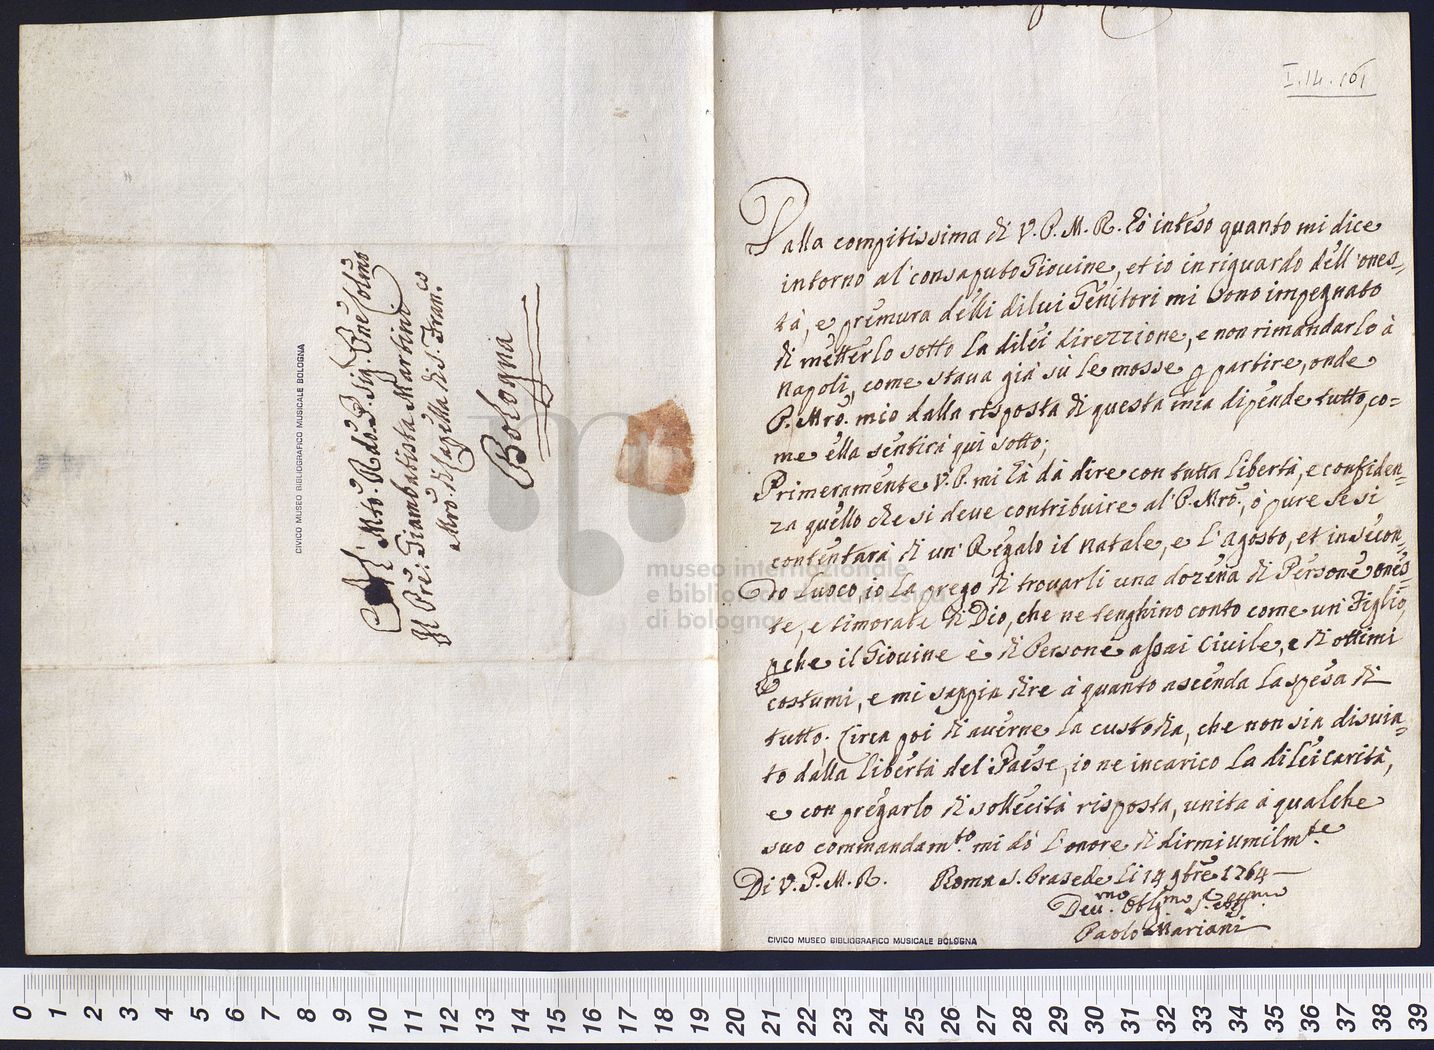 I.14.161
Dalla compitissima di V. P. M. R. hò inteso quanto mi dice
intorno al' consaputo Giovine, et io in riguardo dell'ones=
tà, e premura delli di lui Genitori mi sono impegnato
di metterlo sotto la di lei direzzione, e non rimandarlo à
Napoli, come stava già sù le mosse p partire, onde
P. Mrõ. mio dalla risposta di questa mia dipende tutto, co=
me ella sentirà qui sotto;
Primeramente V. P. mi hà dà dire con tutta libertà, e confiden=
za quello che si deve contribuire al' P. Mrõ, ò pure se si
contentarà di un' Regalo il Natale, e l'Agosto, et in secon=
do luoco io la prego di trovarli una dozena di Persone ones=
te, e timorate di Dio, che ne tenghino conto come un' Figlio,
pche il Giovine è di Persone assai Civile, e di ottimi
costumi, e mi sappia dire à quanto ascenda la spesa di
tutto; Circa poi di averne la custodia, che non sia disvia=
to dalla libertà del' Paese, io ne incarico la di lei carità,
e con pregarlo di sollecita risposta, unita à qualche
suo commandam.to mi dò l'onore di dirmi umilm.te
Di V. P. M. R. Roma S. Prasede li 14 9bre 1764
Dev.mo Obl.mo
Paolo Mariani
CIVICO MUSEO BIBLIOGRAFICO MUSICALE BOLOGNA
Al' Mtõ. Rdo. P. Sig. Pne Colmo
Il Pre: Giambatista Martini
Mrõ. di Capella di S. Fran.co
Bologna
CIVICO MUSEO BIBLIOGRAFICO MUSICALE BOLOGNA
museo internazionale
e biblioteca della musica
di bologna
0 1 2 3 4 5 6 7 8 9 10 11 12 13 14 15 16 17 18 19 20 21 22 23 24 25 26 27 28 29 30 31 32 33 34 35 36 37 38 39